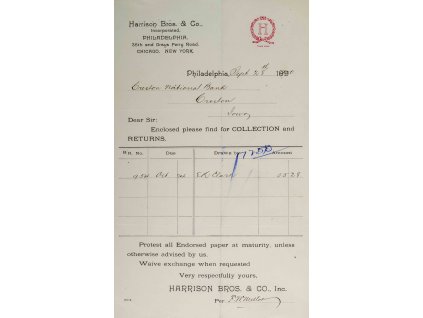 Harrison Bros. & Co.,
Incorporated,
PHILADELPHIA,
35th and Grays Ferry Road.
CHICAGO. NEW YORK.
H
Philadelphia, Sept 28th 189
Creston National Bank
Creston
Iowa
Dear Sir:
Enclosed please find for COLLECTION and
RETURNS.
No. Due Drawn Amount
Oct E.R.
Protest all Endorsed paper at maturity, unless
otherwise advised by us.
Waive exchange when requested
Very respectfully yours,
HARRISON BROS. & CO., Inc.
Per